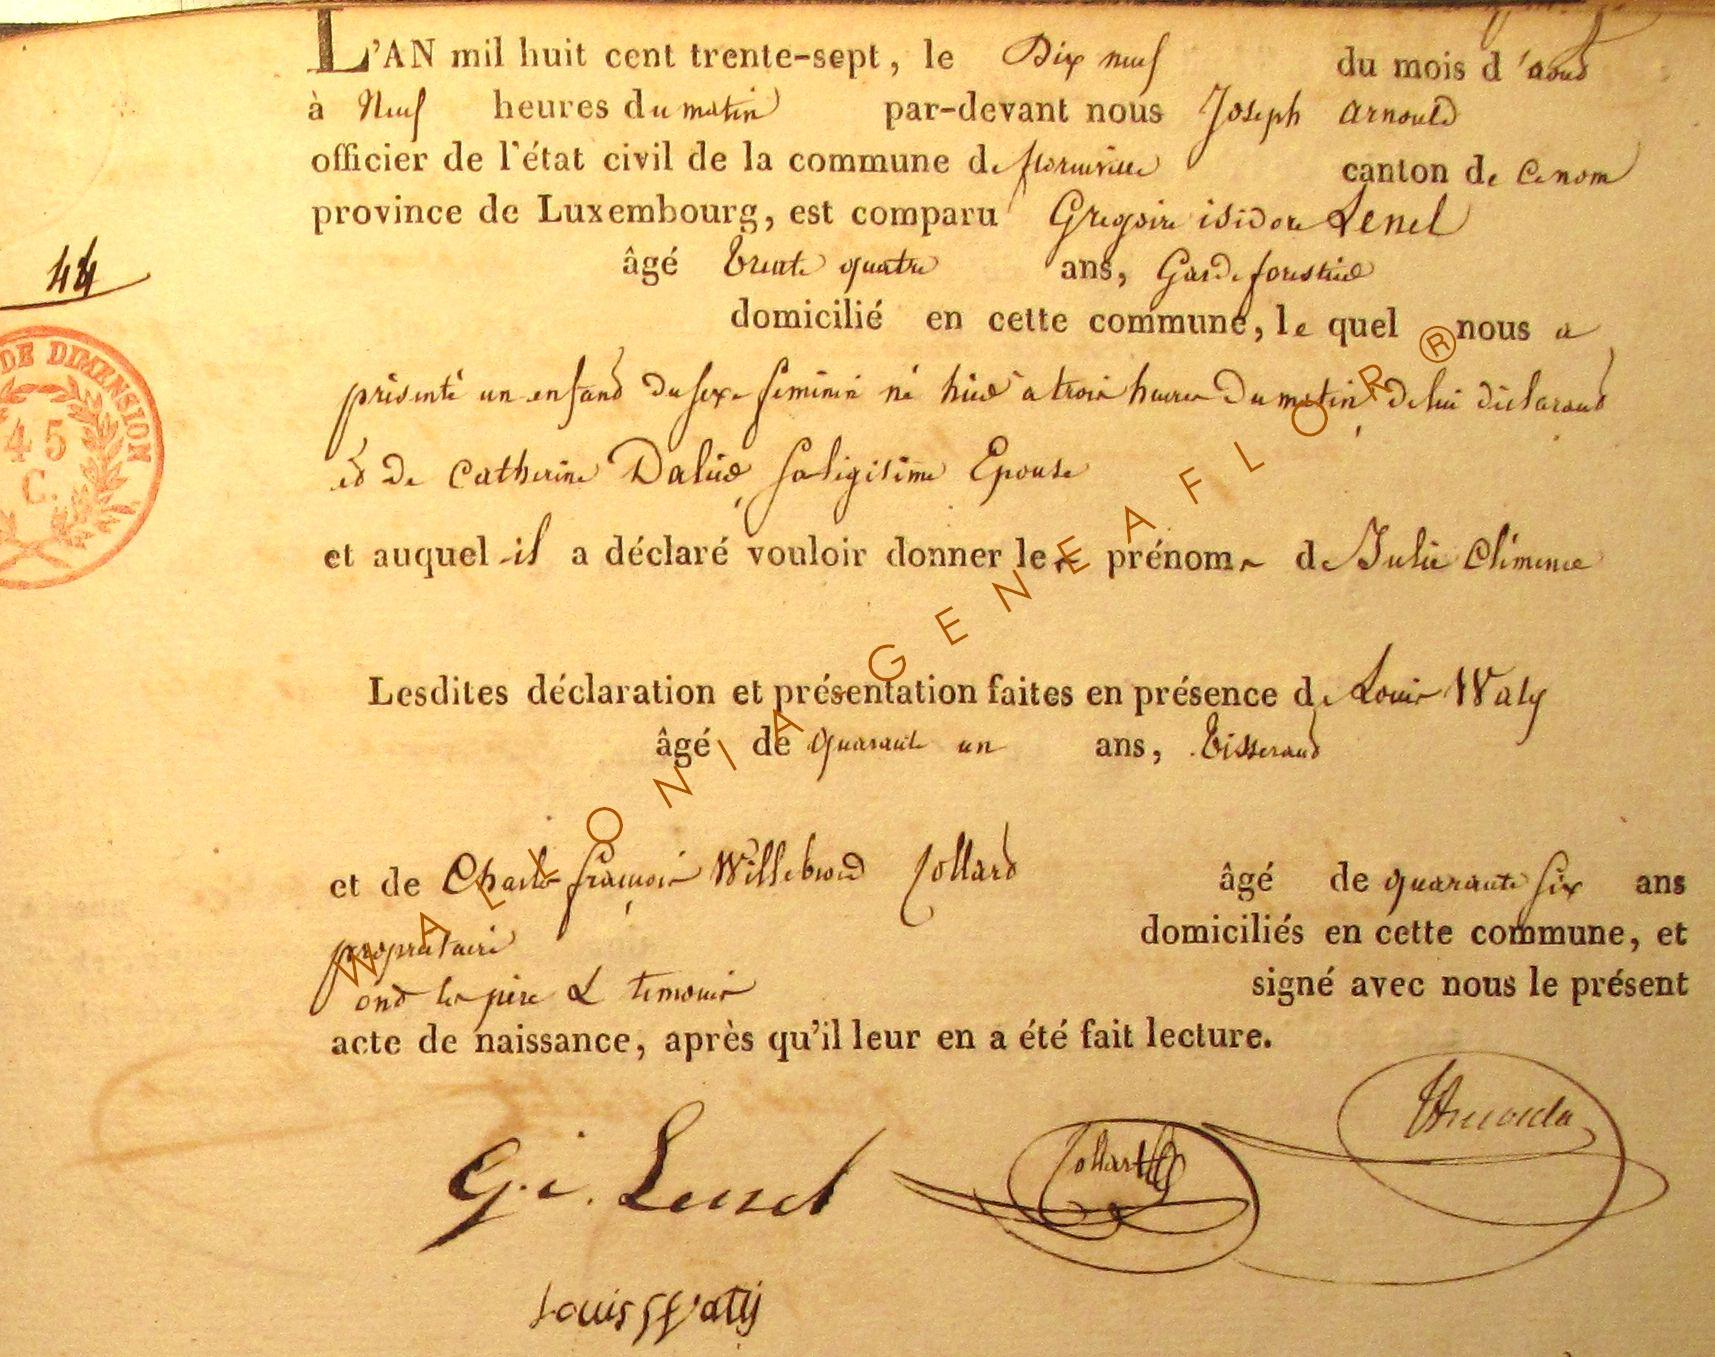 L'AN mil huit cent trente-sept, le Dix neuf du mois d'aout
à Neuf heures du matin par-devant nous Joseph Arnould
officier de l'état civil de la commune de florenville canton de ce nom
province de Luxembourg, est comparu Gregoire isidore Lenel
44
âgé trente quatre ans, Garde forestier
domicilié en cette commune, le quel nous a
DE DIMENSION
45
C.
présenté un enfant du sexe feminin né hier a trois heures du matin, de lui déclarant
et de Catherine sa légitime Epouse
et auquel il a déclaré vouloir donner les prénoms de Julie Clémence
Lesdites déclaration et présentation faites en présence de Louis Waty
âgé de quarante un ans, tisserand
et de Charles françois Willebrord Collard âgé de quarante six ans
propriétaire domiciliés en cette commune, et
ont les père & temoins signé avec nous le présent
acte de naissance, après qu'il leur en a été fait lecture.
G. i. Lenel
Collard
Louis Watij
WALLONIA GENEAFLOR ®